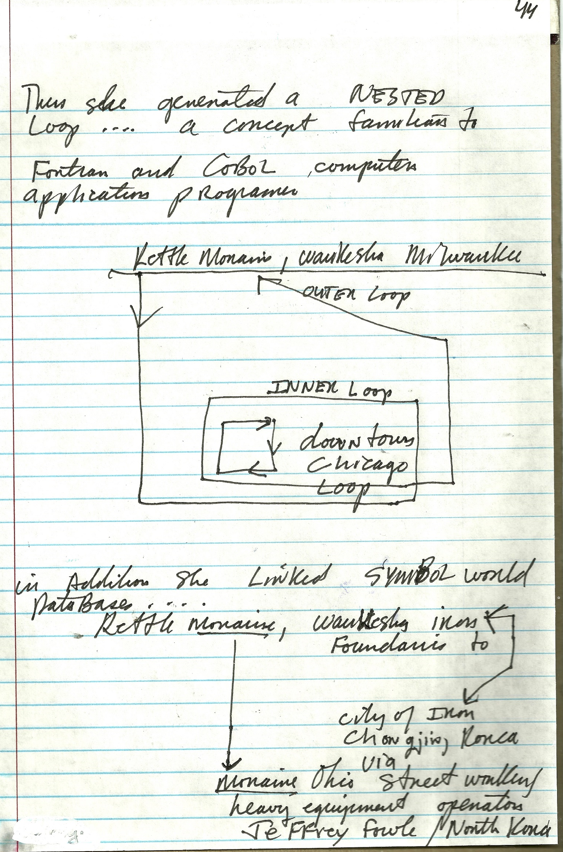 44
Then she generated a NESTED
Loop .... a concept familiar to
Fortran and COBOL, computer
application programer
Kettle Moraine, waukesha Milwaukee
OUTER Loop
INNER Loop
down town
Chicago
Loop
in Addition She Linked SYMBOL world
DataBases.....
Kettle Moraine, waukesha iron
Foundaris to
city of Iron
Chongjin, Korea
via
Moraine Ohio Street worker/
heavy equipment operator
Jeffrey Fowle / North Korea